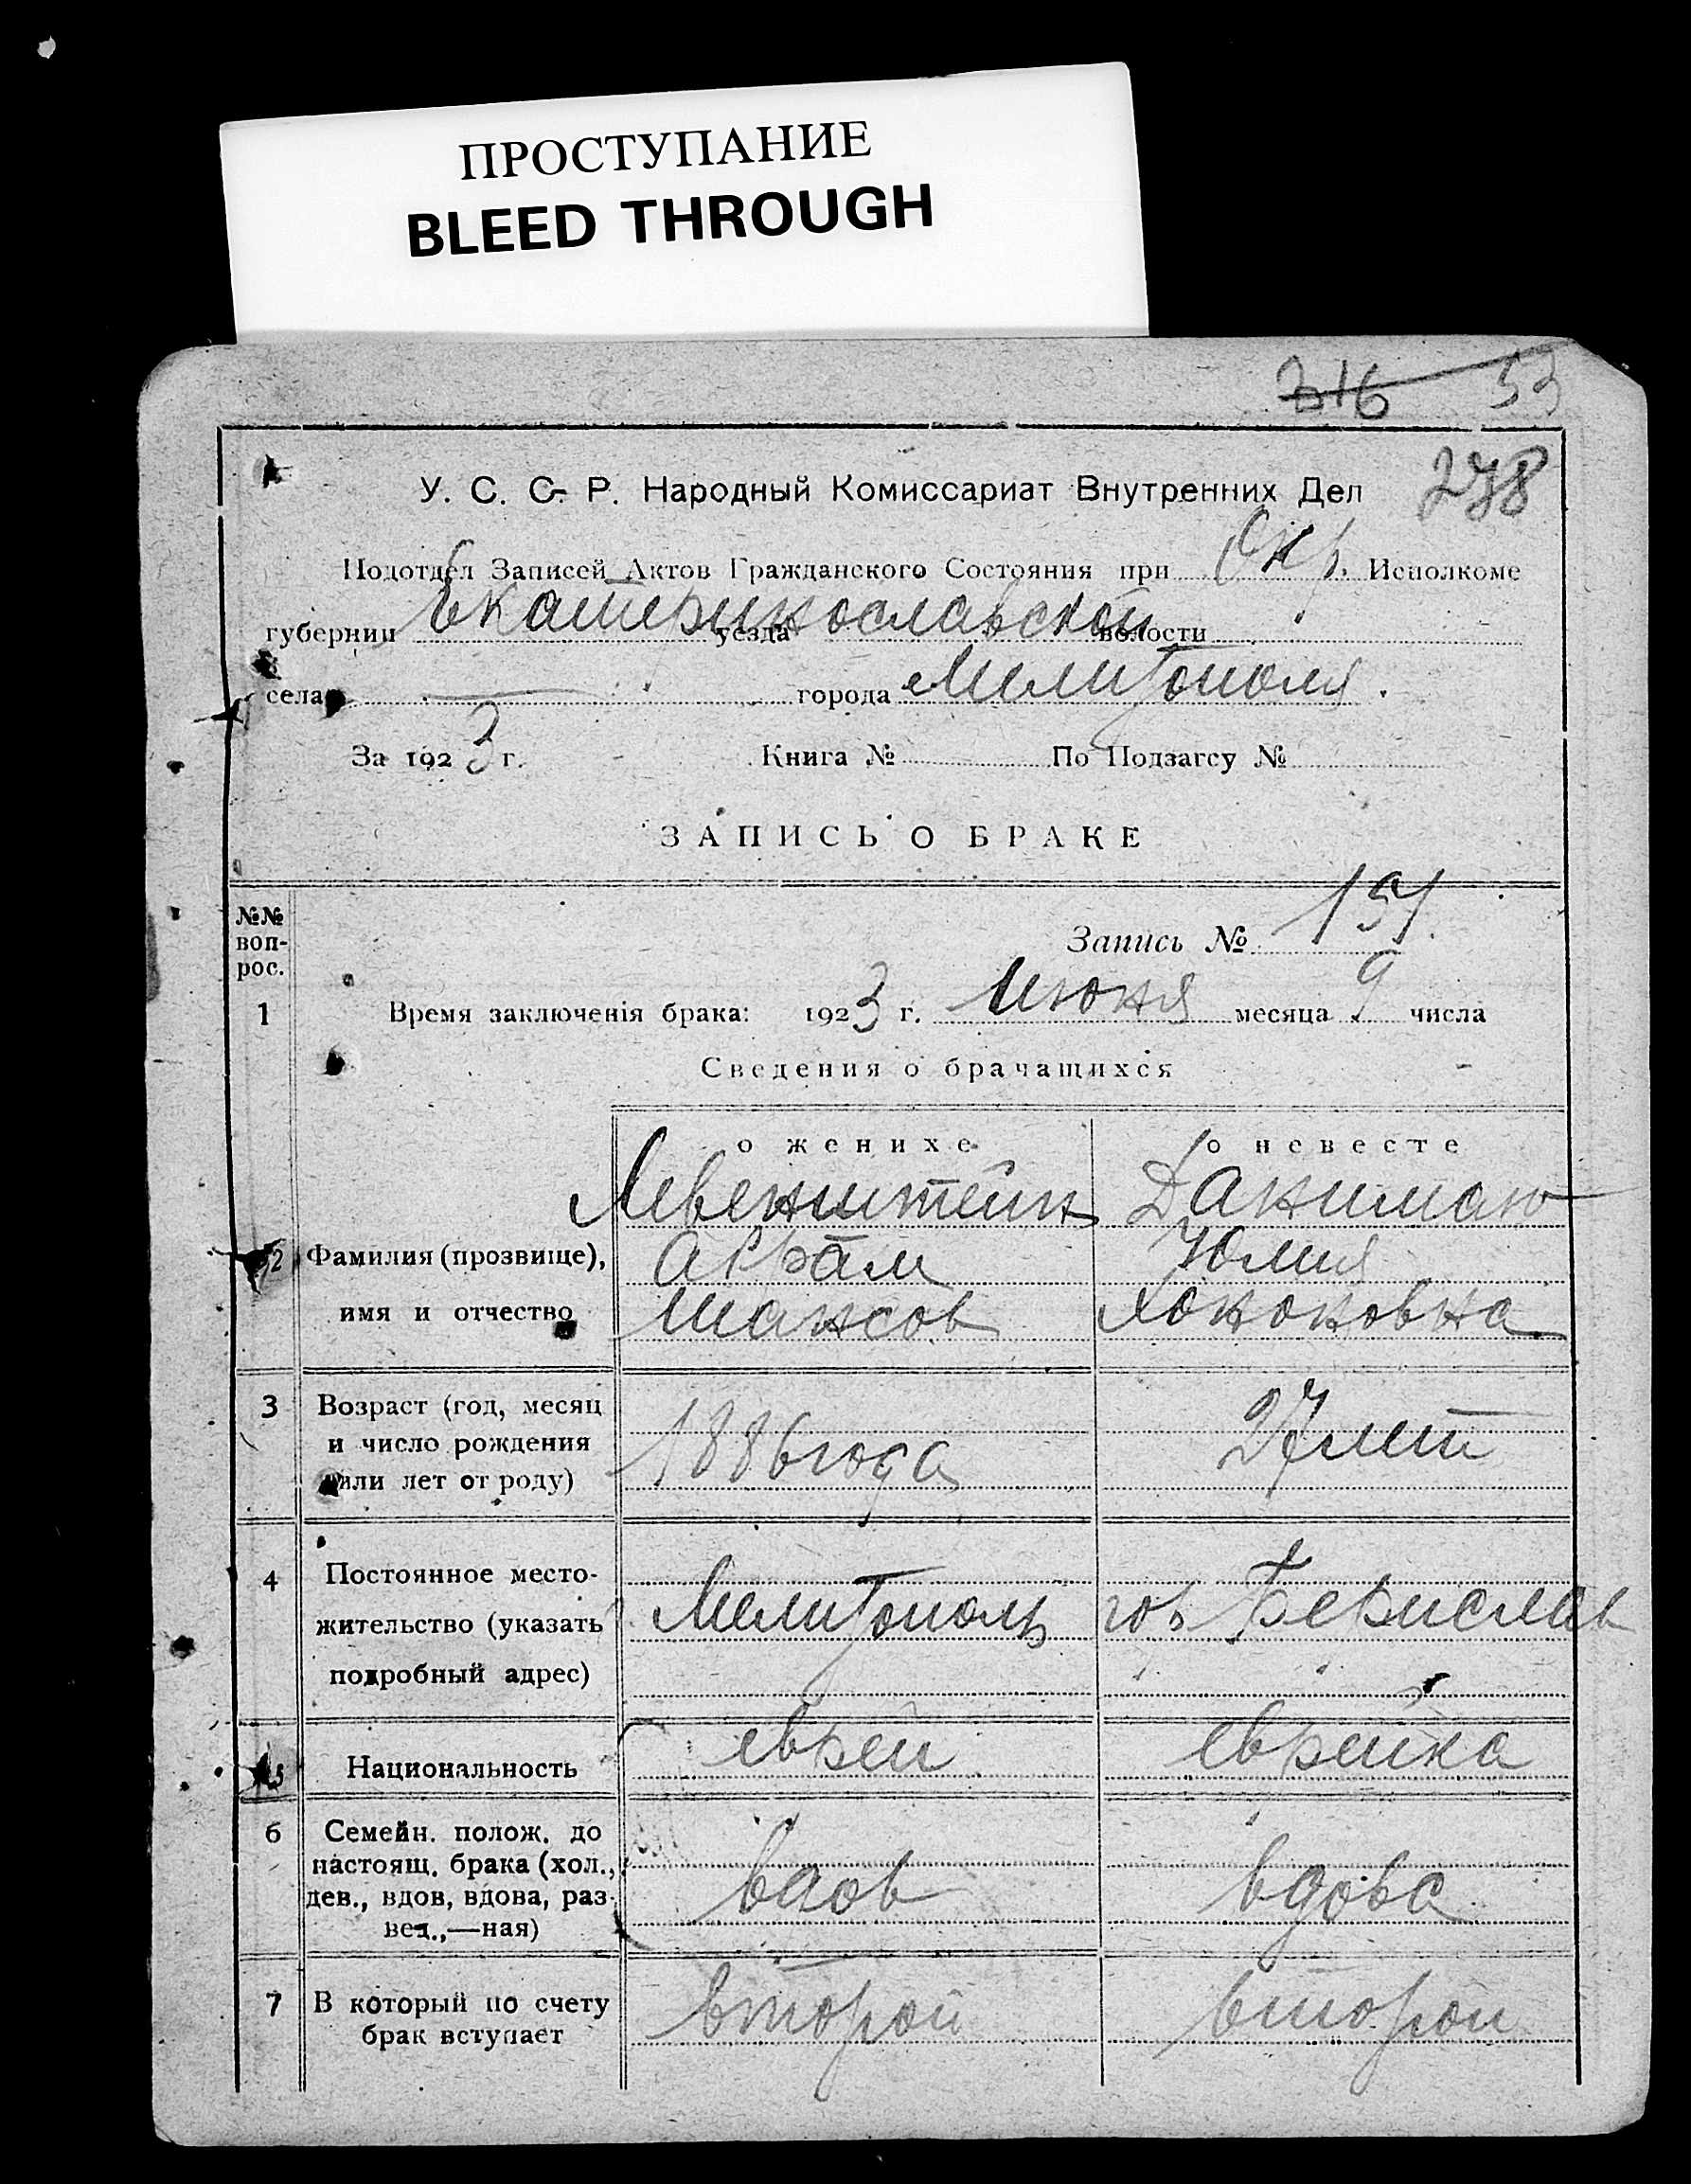 ПРОСТУПАНИЕ
BLEED THROUGH
316 53
278
У. С. С. Р. Народный Комиссариат Внутренних Дел
Подотдел Записей Актов Гражданского Состояния при Окр. Исполкоме
губернии Екатеринославской уезда волости
села города Мелитополя.
За 1923 г. Книга № По Подзагсу №
ЗАПИСЬ О БРАКЕ
№№ воп-рос.
Запись № 151.
1 Время заключенія брака: 1923 г. Июня месяца 9 числа
Сведения о брачащихся
о женихе о невесте
Левенштейн
2 Фамилия (прозвище), Абрам Юлия
имя и отчество
3 Возраст (год, месяц
и число рождения 1886 года 27 лет
или лет от роду)
4 Постоянное место-
жительство (указать Мелитополь гор Берислав
подробный адрес)
5 Национальность еврей еврейка
6 Семейн. полож. до
настоящ. брака (хол.,
дев., вдов, вдова, раз- вдов вдова
вед.,—ная)
7 В который по счету второй второй
брак вступает